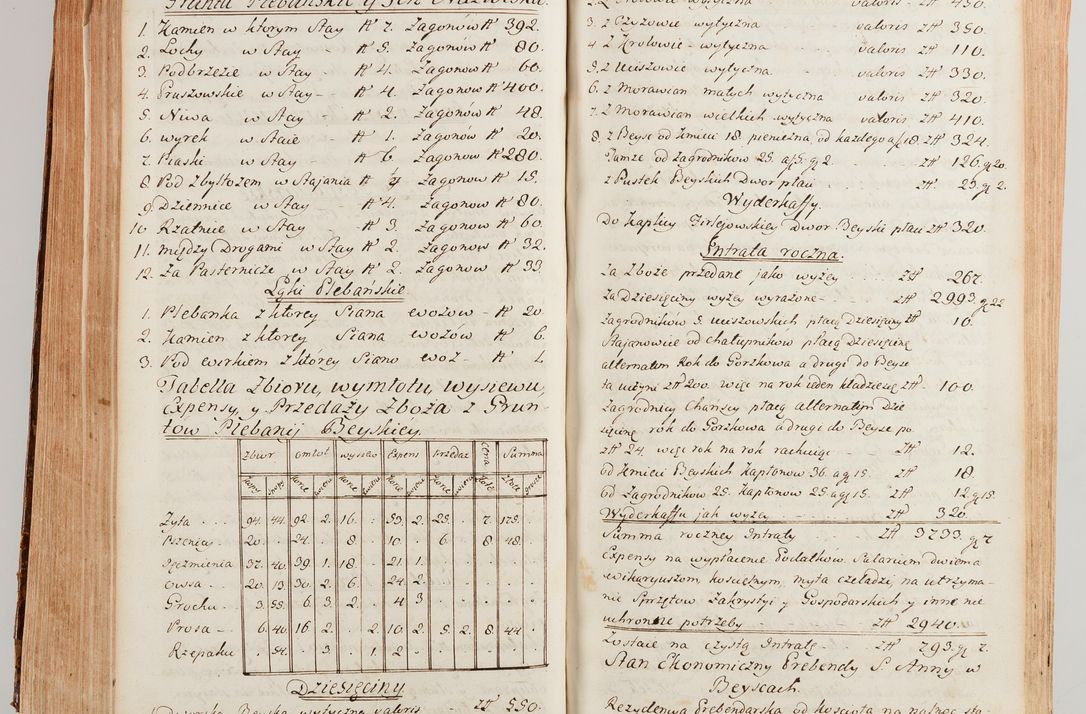 Grunta Plebańskie y Ich Nazwiska.
1. Kamien w ktorym Stay № 7. Zagonów № 392.
2. Lochy w Stay № 5. Zagonów № 80.
3. Podbrzezie w Stay - № 4. Zagonow № 60.
4. Pruszowskie w Stay - № 4. Zagonow № 400.
5. Niwa w Stay - № 2. Zagonow № 48.
6. wyrek w Staie - № 1. Zagonów № 20.
7. Piaski w Stay - № 6. Zagonow № 280.
8. Pod Zbyltozem w Stajania № Zagonow № 15.
9. Dziennice w Stay - № 4. Zagonow № 80.
10. Rzatnie w Stay - № 3. Zagonow № 60.
11. między Drogami w Stay № 2. Zagonow № 32.
12. Za Pasternicze w Stay № 2. Zagonow № 33.
Łąki Plebańskie.
1. Plebanka z ktorey Siana wozow - № 20.
2. Kamien z ktorey Siana wozów № 6.
3. Pod cwirkiem z ktorey Siano woz - № 1.
Tabella Zbioru, wymłotu, wysiewu,
Expensy, y Przedaży Zboża z Grun-
tów Plebanij Beyskiey.
Zbior omłot wysiao Expens Przedaż Cena Summa
Kopy snop Korce wierte Korce wierte Korce wierte Korce wierte Złote Złote grosze
Żyta . . . 94. 44. 92. 2. 16. : 53. 2. 25. . 7. 175. .
Pszenicy 20. . 24. . 8. . 10. . 6. . 8. 48. .
Jęczmienia 37. 40. 39. 1. 18. . 21. 1. . . . . .
owssa . 20. 13. 30. 2. 6. . 24. 2. . . . . .
Grochu . 3. 55. 6. 3. 2. . 4. 3. . . . . .
Prosa - 6. 40. 16. 2. . 2. 10. 2. 5. 2. 8. 44. .
Rzepaku . 54. . 3. . 1. . 2. . . . . .
Dziesięciny
Dworska Beyska wytyczna valoris - zł 550.
valoris - zł 450.
3. z Czyzowic wytyczna valoris zł 350.
4. z Krolowic - wytyczna - valoris zł 110.
5. z uciszowic wytyczna. - valoris zł 330.
6. z Morawian małych wytyczna valoris zł 320.
7. z Morawian wielkich wytyczna valoris zł 410.
8. z Beysc od Kmieci 18. pieniezna od kazdego a f 18. zł 324.
Tamze od Zagrodnikow 25. a f 5. g 2. - zł 126. g 20.
z Pustek Beyskich Dwor płaci - zł 25. g 2.
Wyderkaffy.
Do Kaplicy Firlejowskiey Dwor Beyski płaci zł 320.
Intrata roczna.
Za Zboże przedane jako wyżey - zł 267.
Za Dziesięciny wyżey wyrażone - zł 2993. g 22
Zagrodników 5. uciszowskich płacą Dziesięciny zł 16.
Stajanowice od chałupnikow płacą Dziesięcinę
alternatim Rok do Gorzkowa a drugi do Beysc
ta uczyni zł 200. więc na rok ieden kładzie się zł - 100.
Zagrodnicy Chańscy płacą alternatim Dzie
sięcinę rok do Gorzkowa a drugi do Beysc po
zł 24. więc rok na rok rachuiąc - zł 12.
od Kmieci Beyskich Kapłonow 36. a g 15. zł 18.
od Zagrodnikow 25. Kapłonow 25. a g 15. zł 12 g 15.
Wyderkaffu jak wyżey - zł 320
Summa roczney Intraty - zł 3733. g 7
Expensy na wypłacenie Podatkow. Salarium dwoma
wikaryuszom kościelnym, myta czeladzi, na utrzyma-
nie Sprzętow Zakrystyi y Gospodarskich y inne nie
uchronne potrzeby - zł 2940.
Zostaie na czystą Intratę - zł 793. g 7.
Stan Ekonomiczny Prebendy S. Anny w
Beyscach.
Rezydencya Prebendarska od kościoła na połnoc sto-